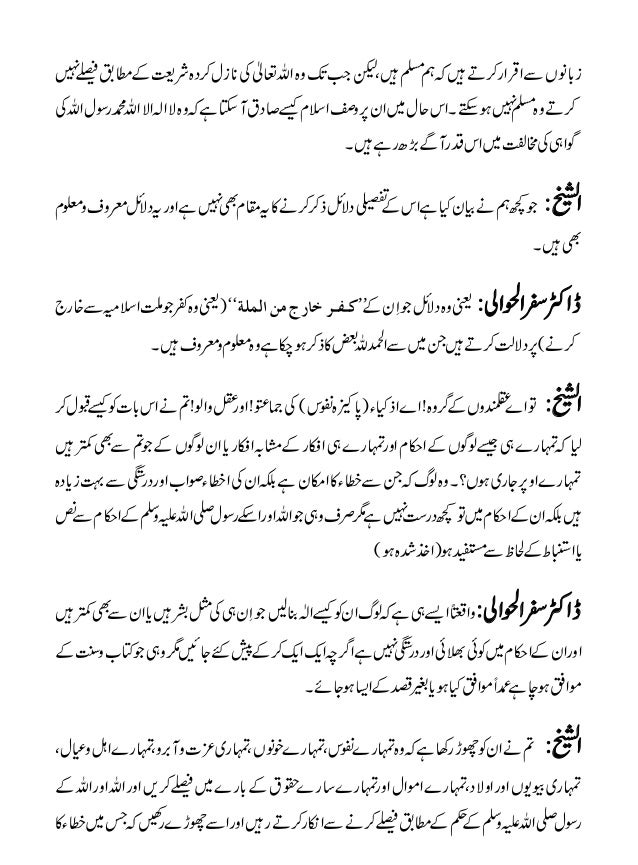 زبانوں سے اقرار کرتے ہیں کہ ہم مسلم ہیں، لیکن جب تک وہ اللہ تعالیٰ کی نازل کردہ شریعت کے مطابق فیصلے نہیں
کرتے وہ مسلم نہیں ہو سکتے۔ اس حال میں ان پر وصف اسلام کیسے صادق آ سکتا ہے کہ وہ لا الہ الا اللہ محمد رسول اللہ کی
گواہی کی مخالفت میں اس قدر آگے بڑھ رہے ہیں۔
الشیخ: جو کچھ ہم نے بیان کیا ہے اس کے تفصیلی دلائل ذکر کرنے کا یہ مقام بھی نہیں ہے اور یہ دلائل معروف و معلوم
بھی ہیں۔
ڈاکٹر سفر الحوالی: یعنی وہ دلائل جو اِن کے ’’کفر خارج من الملة‘‘ (یعنی وہ کفر جو ملت اسلامیہ سے خارج
کرنے) پر دلالت کرتے ہیں جن میں سے الحمد للہ بعض کا ذکر ہو چکا ہے وہ معلوم و معروف ہیں۔
الشیخ: تو اے عقلمندوں کے گروہ! اے اذکیاء (پاکیزہ نفوس) کی جماعتو! اور عقل والو! تم نے اس بات کو کیسے قبول کر
لیا کہ تمہارے ہی جیسے لوگوں کے احکام اور تمہارے ہی افکار کے مشابہ افکار یا ان لوگوں کے جو تم سے بھی کمتر ہیں
تمہارے اوپر جاری ہوں؟۔ وہ لوگ کہ جن سے خطاء کا امکان ہے بلکہ ان کی اخطاء صواب اور درستگی سے بہت زیادہ
ہیں بلکہ ان کے احکام میں تو کچھ درست نہیں ہے مگر صرف وہی جو اللہ اور اسکے رسول صلی اللہ علیہ وسلم کے احکام سے نص
یا استنباط کے لحاظ سے مستفید ہو (اخذ شدہ ہو)
ڈاکٹر سفر الحوالی: واقعتاً ایسے ہی ہے کہ لوگ ان کو کیسے الٰہ بنا لیں جو اِن ہی کی مثل بشر ہیں یا ان سے بھی کمتر ہیں
اور ان کے احکام میں کوئی بھلائی اور درستگی نہیں ہے اگرچہ ایک ایک کر کے پیش کئے جائیں مگر وہی جو کتاب و سنت کے
موافق ہو چاہے عمداً موافق کیا ہو یا بغیر قصد کے ایسا ہو جائے۔
الشیخ: تم نے ان کو چھوڑ رکھا ہے کہ وہ تمہارے نفوس، تمہارے خونوں، تمہاری عزت و آبرو، تمہارے اہل و عیال،
تمہاری بیویوں اور اولاد، تمہارے اموال اور تمہارے سارے حقوق کے بارے میں فیصلے کریں اور اللہ اور اللہ کے
رسول صلی اللہ علیہ وسلم کے حکم کے مطابق فیصلے کرنے سے انکار کرتے رہیں اور اسے چھوڑے رکھیں کہ جس میں خطاء کا